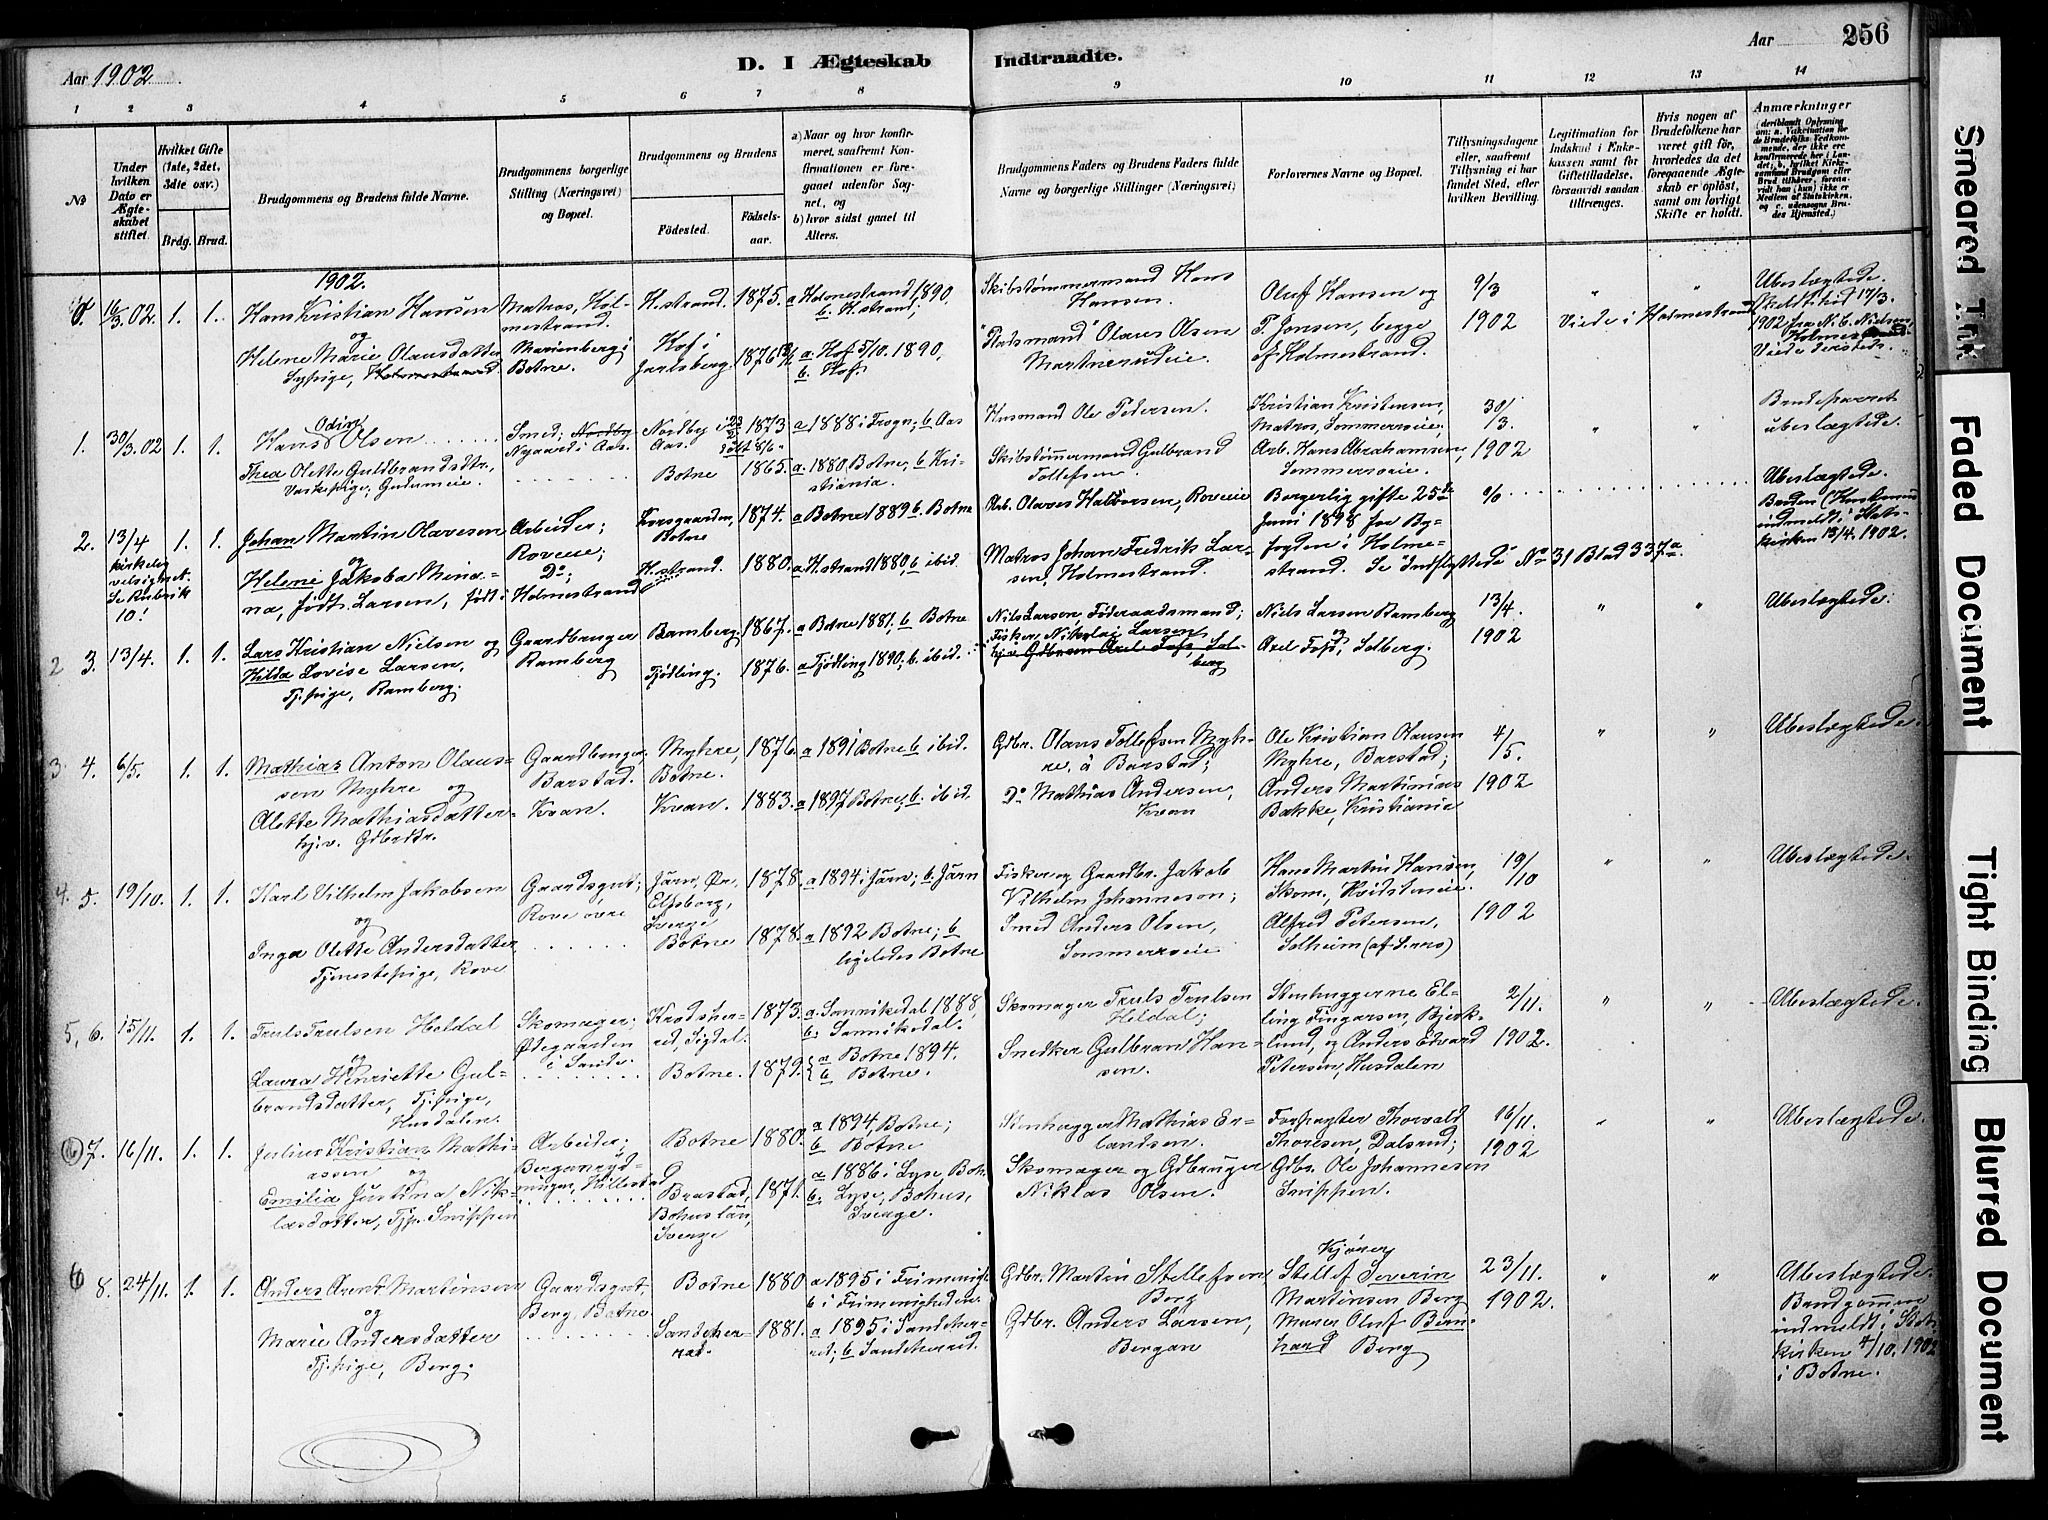 Aar 1902
D. I Ægteskab
Indtraadte.
Aar
256
1
2
3
4
5
6
7
8
9
10
11
12
13
14
No
Under hvilken Dato er Ægteskabet stiftet.
Hvilket Gifte (1ste, 2det, 3die osv.)
Brdg.
Brud.
Brudgommens og Brudens fulde Navne.
Brudgommens borgerlige Stilling (Næringsvei) og Bopæl.
Brudgommens og Brudens
Fødested.
Fødselsaar.
a) Naar og hvor konfirmeret, saafremt Konfirmationen er foregaaet udenfor Sognet, og
b) hvor sidst gaaet til Alters.
Brudgommens Faders og Brudens Faders fulde Navne og borgerlige Stillinger (Næringsvei)
Forlovernes Navne og Bopæl.
Tillysningsdagene eller, saafremt Tillysning ei har fundet Sted, efter hvilken Bevilling.
Legitimation for Indskud i Enkekassen samt for Giftetilladelse, forsaavidt saadan tiltrænges.
Hvis nogen af Brudefolkene har været gift før, hvorledes da det foregaaende Ægteskab er opløst, samt om lovligt Skifte er holdt.
Anmærkninger
1902.
16/3.02. 1. 1. Hans Kristian Hansen
og
Helene Marie Olausdatter
Matros, Holmestrand.
Marienberg i Botne.
H.strand. 1875. a Holmestrand 1890,
b. H.strand,
Hof i Jarlsberg.
a. Hof 5/10. 1890,
b. Hof.
Skibstømmermand Hans
Hansen.
"Pladsmand" Olaus Olsen
Oluf Hansen og
T. Jensen, begge
af Holmestrand.
9/3
1902
Viede i Holmestrand
Ubeslægtede.
1. 30/3.02 1. 1. Hans Odin Olsen
Thea Olette Guldbrandsdtr.,
Smed, Nordby
Nygaard i Aas.
Nordby i Aas.
1873
a 1888 i Frogn; b Aas
Botne 1865. a. 1880 Botne; b Kristiania.
Husmand Ole Pedersen.
Skibstømmermand Gulbrand
Tollefsen.
Kristian Kristensen,
Matros, Sommerroeie;
Arb. Hans Abrahamsen,
Sommerroeie.
30/3.
1902
Brudeparret
ubeslægtede.
2. 13/4 1. 1. Johan Martin Olavesen
og
Helene Jakoba Mina-
na, født Larsen, født i
kirkelig
velsignet.
Se Rubrik
10!
Arbeider;
Roveie;
Do;
Holmestrand
Korsgaarden,
Botne
1874. a Botne 1889 b. Botne
H.strand. 1880. a. H.strand 1880, b ibid
Arb. Olaves Halvorsen, Roveie
Matros Johan Fredrik Larsen,
Holmestrand.
Borgerlig gifte 25de
Juni 1898 for By-
fogden i Holme-
strand. Se "Indflyttede" No 31 Blad 337a
Ubeslægtede.
Bruden
indmeldt i Stats-
kirken 13/4. 1902.
2 3. 13/4. 1. 1. Lars Kristian Nielsen og
Hilda Lovise Larsen,
Tj.pige, Ramberg.
Gaardbruger
Ramberg
Ramberg. 1867. a Botne 1881, b Botne
Tjødling. 1876. a Tjødling 1890; b. ibid.
Nils Larsen, Føderaadsmand;
Fisker, Nikolai Larsen
Niels Larsen Ramberg
og
Axel Foss, Solberg.
13/4.
1902
Ubeslægtede.
3. 4. 6/5. 1. 1. Mathias Anton Olaus-
sen Myhre og
Alette Mathiasdatter
hj.v. Gdbrdtr.
Gaardbruger,
Barstad.
Kvan.
Myhre,
Botne.
1876. a 1891 Botne b ibid.
Kvan. 1883. a 1897 Botne; b. ibid.
Gdbr. Olaus Tollefsen Myhre,
å Barstad;
Do Mathias Andersen,
Kvan
Ole Kristian Olausen
Myhre, Barstad;
Anders Martinius
Bakke, Kristiania
4/5.
1902
Ubeslægtede.
4. 5. 19/10. 1. 1. Karl Vilhelm Jakobsen
og
Inga Olette Andersdatter,
Tjenestepige, Rove
Gaardsgut;
Rove øvre
Järn, Ør,
Elfsborg,
Sverge
1878. a 1894 i Järn; b. Järn
Botne 1878. a 1892 Botne; b
ligeledes Botne
Fisker og Gaardbr. Jakob
Vilhelm Johanneson;
Smed Anders Olsen,
Sommerroeie
Hans Martin Hansen,
Skom., Hvidsteneie.
Alfred Petersen,
Solheim
19/10
1902
Ubeslægtede.
5. 6. 15/11. 1. 1. Truls Trulsen Heldal
og
Laura Henriette Gul-
brandsdatter, Tj.pige,
Husdalen.
Skomager;
Ødegaarden
i Sande.
Krødsher-
red, Sigdal.
1873. a. Sannikedal 1888
b. Sannikedal.
Botne. 1879. a Botne 1894.
b Botne.
Skomager Truls Trulsen
Heldal;
Snedker Gulbran Han-
sen.
Stenhuggerne El-
ling Fingarsen, Bjerk-
lund, og Anders Edvard
Petersen, Husdalen
2/11.
1902.
Ubeslægtede.
(6) 7. 16/11. 1. 1. Julius Kristian Mathi-
assen og
Emilia Justina Nik-
lasdotter, Tjp. Snippen
Arbeider;
Bergersryd-
ningen, Hillestad
Botne 1880. a 1894, Botne;
b Botne
Brastad,
Bohuslän,
Sverge
1871. a 1886 i Lyse, Boh.
b. Lyse, Bohus,
Sverge.
Stenhugger Mathias Er-
landsen.
Skomager og Gdbruger
Niklas Olsen.
Forpagter Thorvald
Thoresen, Dalsrud;
Gdbr. Ole Johannesen
Snippen.
16/11.
1902
Ubeslægtede.
6 8. 24/11. 1. 1. Anders Arent Martinsen
og
Marie Andersdatter
Tj.pige, Berg.
Gaardsgut,
Berg, Botne
Botne 1880 a 1895 i Frimenigh.
b i Frimenigheden.
Sandeher-
red.
1881. a 1895 i Sandeher-
red; b Sandeherred.
Gdbr. Martin Stellefsen
Berg
Gdbr. Anders Larsen,
Bergan
Stellef Severin
Martinsen Berg
Murer Oluf Bern-
hard Berg
23/11.
1902.
Ubeslægtede.
Brudgommen
indmeldt i Stats-
kirken 4/10. 1902
i Botne.
Smeared Ink
Faded Document
Tight Binding
Blurred Document